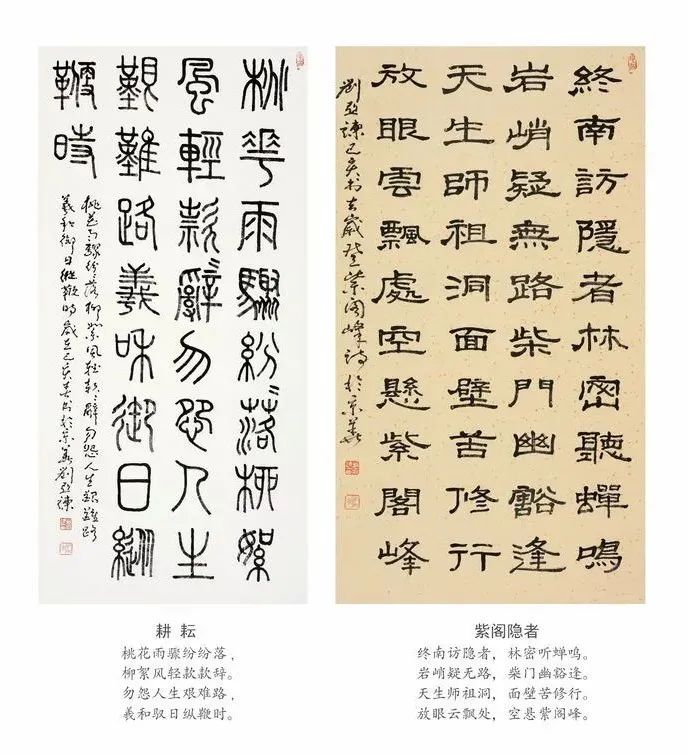 桃花雨驟紛〻落柳絮
風輕款〻辭勿怨人生
艱難路羲和御日縱
鞭時
桃花雨驟紛〻落柳絮風輕款〻辭勿怨人生艱難路
羲和御日縱鞭時歲在己亥春書於京華劉亞諫
終南訪隱者林密聽蟬鳴
岩峭疑無路柴門幽豁逢
天生師祖洞面壁苦修行
放眼雲飄處空懸紫閣峰
劉亞諫己亥書去歲登紫閣峰詩於京華
耕 耘
桃花雨骤纷纷落，
柳絮风轻款款辞。
勿怨人生艰难路，
羲和驭日纵鞭时。
紫阁隐者
终南访隐者，林密听蝉鸣。
岩峭疑无路，柴门幽豁逢。
天生师祖洞，面壁苦修行。
放眼云飘处，空悬紫阁峰。